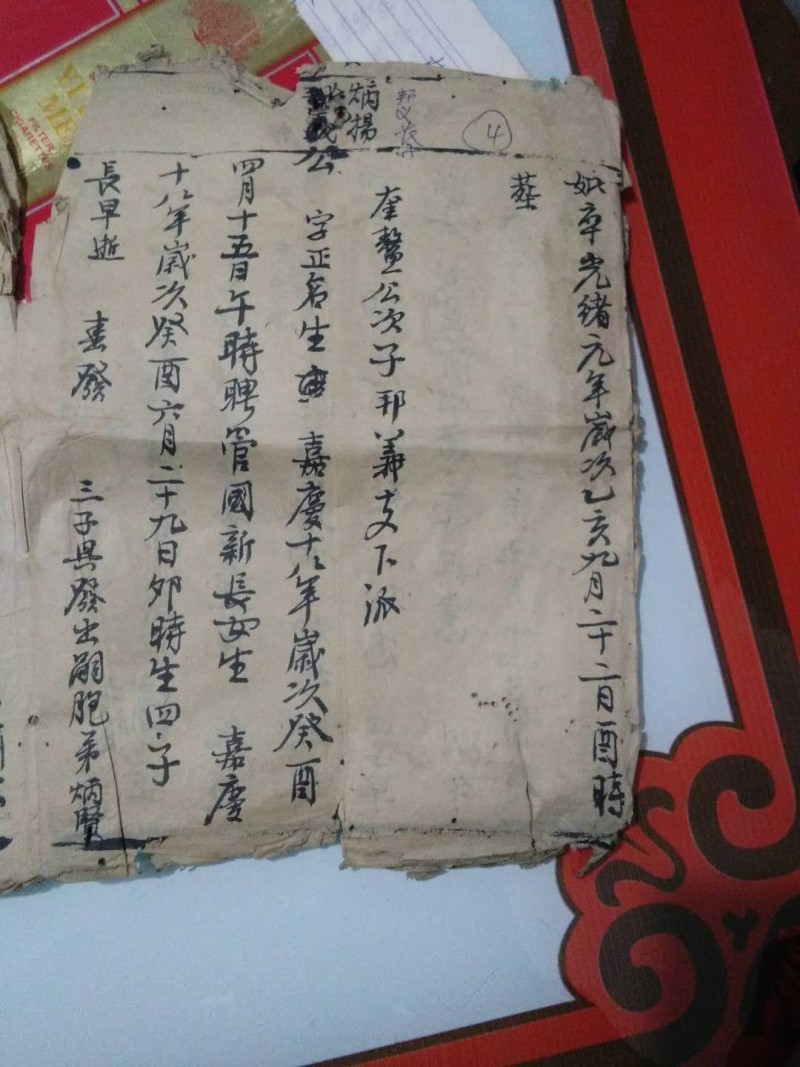 ④
妣卒光緒元年歲次乙亥九月二十二日酉時
葬
奎鰲公次子邦義支下派
炳揚
公 字正名生 嘉慶十八年歲次癸酉
四月十五日午時聘管國新長女生 嘉慶
十八年歲次癸酉六月二十九日卯時生四子
長早逝 春發 三子興發出嗣胞弟炳賢
FILTER CIGARETTES